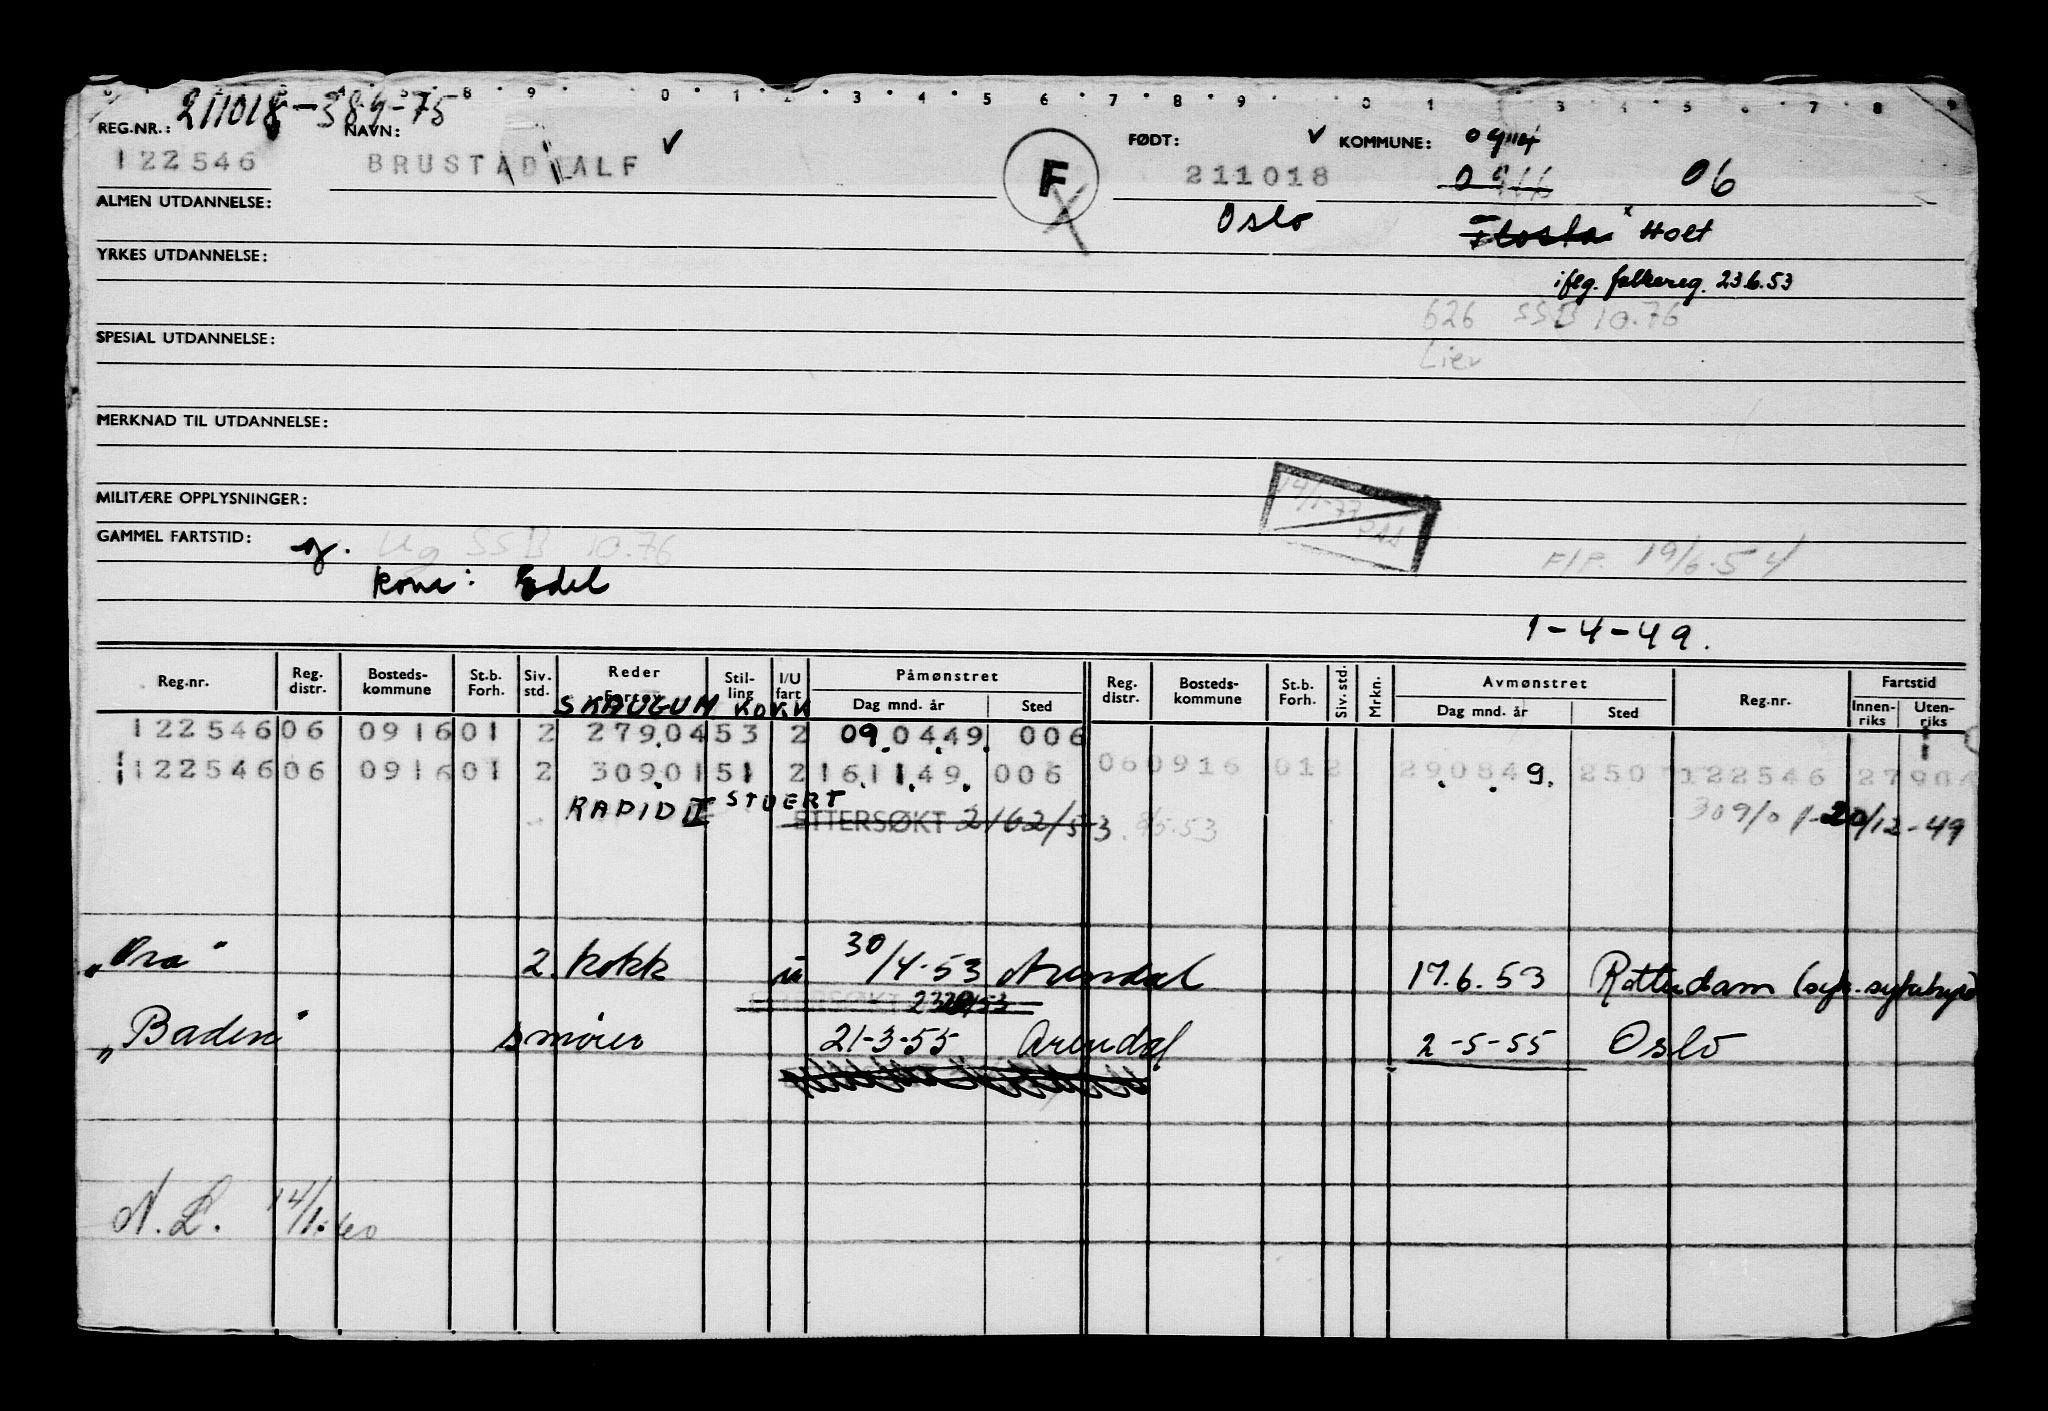 211018-389-75
REG.NR.: NAVN: ✓ FØDT: ✓ KOMMUNE: 0914
122546 BRUSTAD ALF F 211018 06
ALMEN UTDANNELSE: Oslo Flosta x Holt
YRKES UTDANNELSE: iflg. folkereg. 23.6.53
626 SSB 10.76
SPESIAL UTDANNELSE: Lier
MERKNAD TIL UTDANNELSE:
MILITÆRE OPPLYSNINGER: 14/1-77
GAMMEL FARTSTID: Ug SSB 10.76 F/P. 19/6.54
Kone: Edel
1-4-49.
Reg.nr. Reg. distr. Bosteds-kommune St.b. Forh. Siv. std. Reder Stil-ling I/U fart Påmønstret Reg. distr. Bosteds-kommune St.b. Forh. Siv. std. Mrkn. Avmønstret Reg.nr. Fartstid
Dag mnd. år Sted Dag mnd. år Sted Innen-riks Uten-riks
SKAUGUM KOKK
122546 06 0916 01 2 27904 53 2 09.04.49. 006
122546 06 0916 01 2 30901 51 2 161149. 006 06 0916 01 2 290849. 250 122546 27904
RAPID II STUERT ETTERSØKT 2162/53 8/5.53 309/01-20/12-49
"Ora" 2. kokk u 30/4-53 Arendal 17.6.53 Rotterdam
"Baden" smører 21-3-55 Arendal 2-5-55 Oslo
N.L. 14/1.60